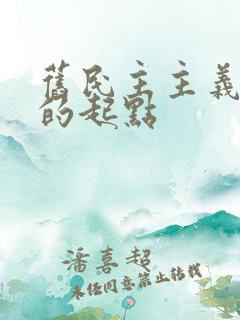 舊民主主義
的起點
潘喜超
未經同意禁止轉載